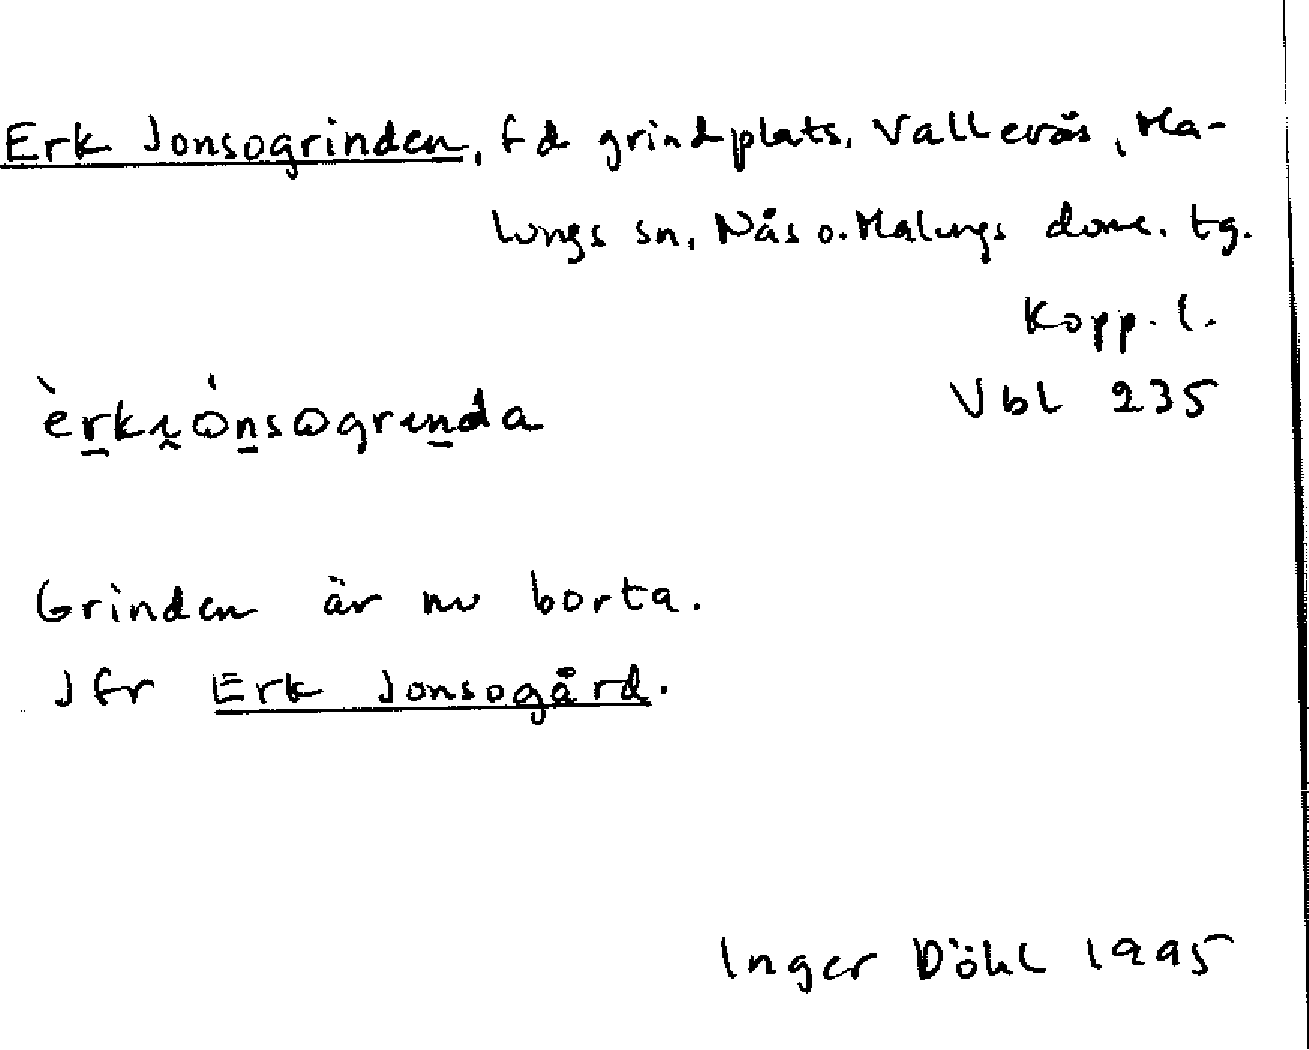 Erk Jonsogrinden, f d grindplats, Vallerås, Ma-
lungs sn, Nås o. Malungs doms. tg.
Kopp. l.
Vbl 235
èrki̯ònsogrinda
Grinden är nu borta.
Jfr Erk Jonsogård.
Inger Döhl 1995